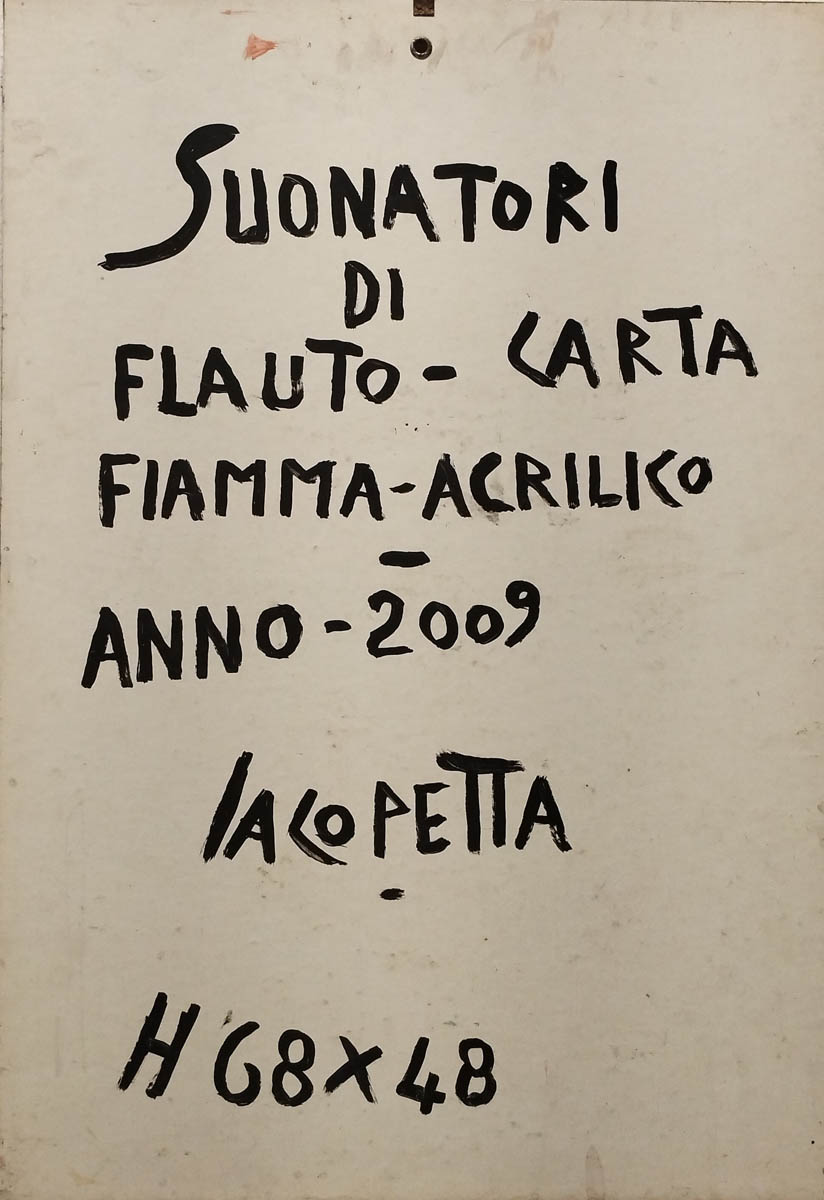 SUONATORI
DI
FLAUTO - CARTA
FIAMMA - ACRILICO
-
ANNO - 2009
IACOPETTA
-
H 68X48